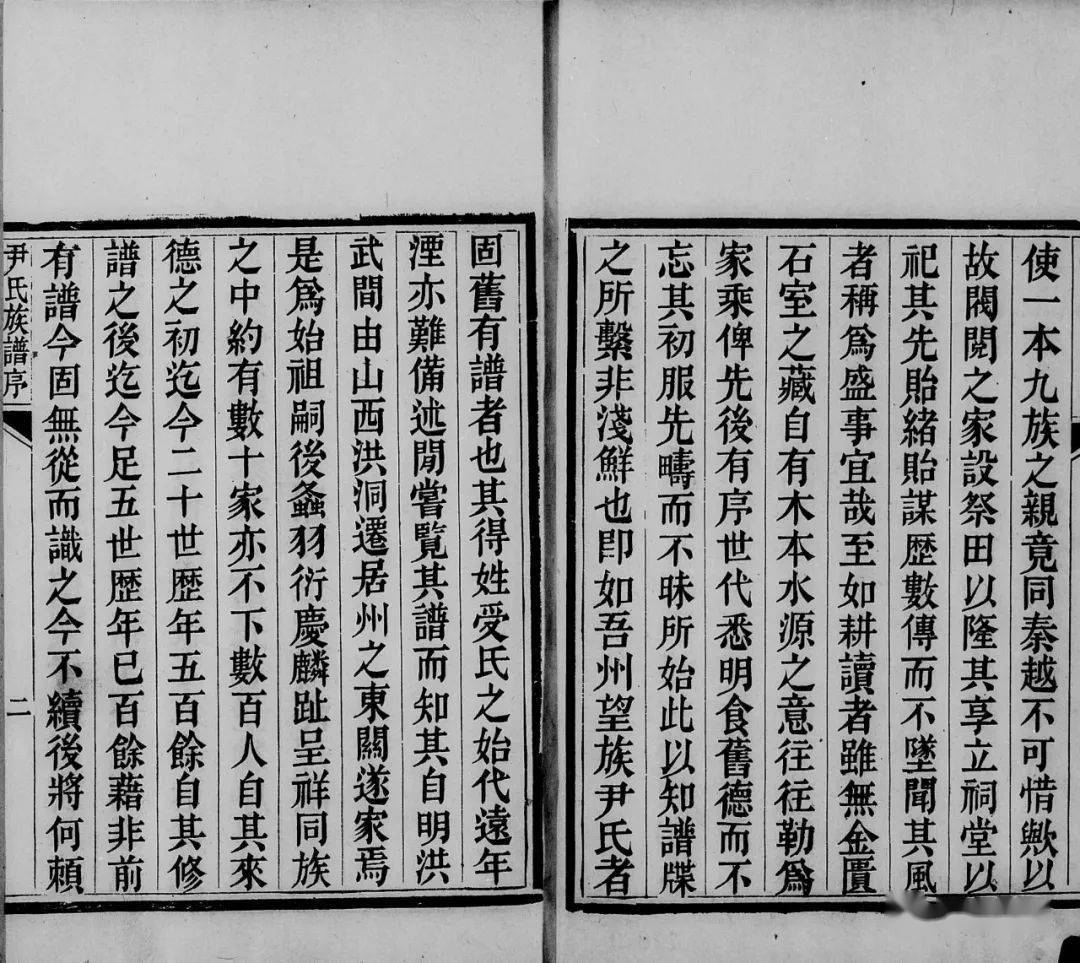 使一本九族之親竟同秦越不可惜歟以
故閥閱之家設祭田以隆其享立祠堂以
祀其先貽緒貽謀歷數傳而不墜聞其風
者稱爲盛事宜哉至如耕讀者雖無金匱
石室之藏自有木本水源之意往往勒爲
家乘俾先後有序世代悉明食舊德而不
忘其初服先疇而不昧所始此以知譜牒
之所繫非淺鮮也卽如吾州望族尹氏者
固舊有譜者也其得姓受氏之始代遠年
湮亦難備述閒嘗覽其譜而知其自明洪
武間由山西洪洞遷居州之東關遂家焉
是爲始祖嗣後螽羽衍慶麟趾呈祥同族
之中約有數十家亦不下數百人自其來
德之初迄今二十世歷年五百餘自其修
譜之後迄今足五世歷年已百餘藉非前
有譜今固無從而識之今不續後將何賴
尹氏族譜序
二